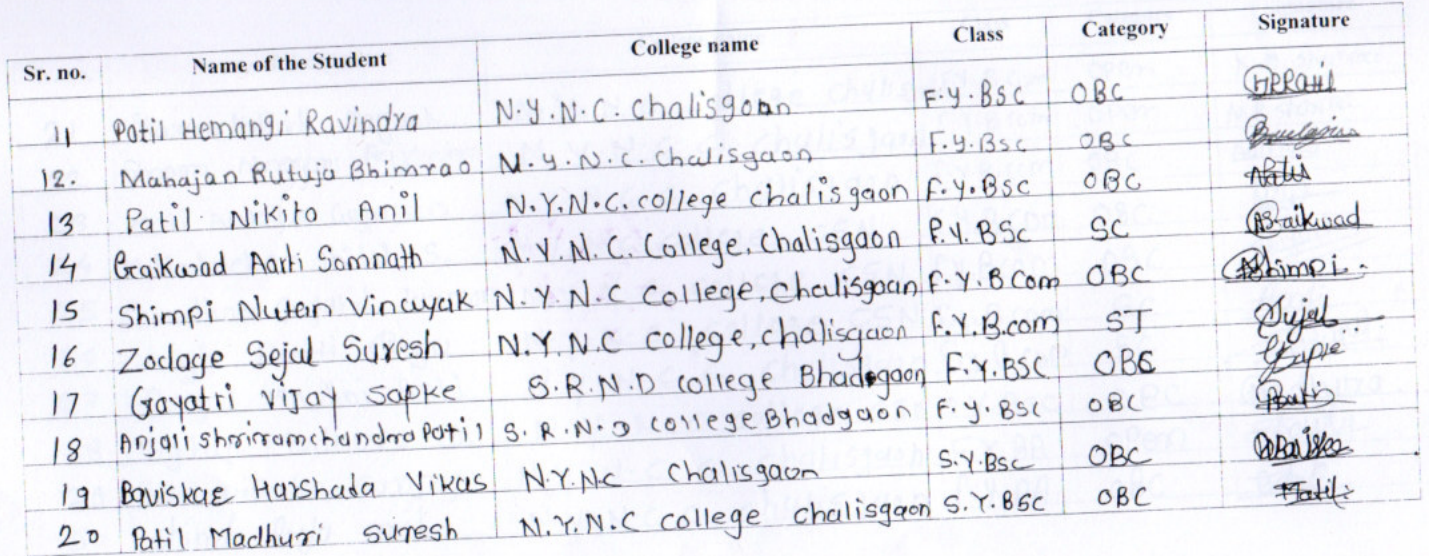 Sr. no. Name of the Student College name Class Category Signature
11 Patil Hemangi Ravindra N.Y.N.C. Chalisgaon F.Y.BSC OBC HRPatil
12. Mahajan Rutuja Bhimrao N.Y.N.C. Chalisgaon F.Y.Bsc OBC
13 Patil Nikita Anil N.Y.N.C. college chalisgaon F.Y.BSC OBC
14 Gaikwad Aarti Somnath N.Y.N.C. College. Chalisgaon F.Y.BSC SC ASGaikwad
15 Shimpi Nutan Vinayak N.Y.N.C College, Chalisgaon F.Y.B Com OBC Shimpi.
16 Zodage Sejal Suresh N.Y.N.C College, chalisgaon F.Y.B.com ST Sujal
17 Gayatri Vijay Sapke S.R.N.D college Bhadagaon F.Y.BSC OBC
18 Anjali Shriramchandra Patil S.R.N.D college Bhadgaon F.Y.BSC OBC
19 Baviskar Harshada Vikas N.Y.N.C Chalisgaon S.Y.BSC OBC
20 Patil Madhuri Suresh N.Y.N.C college chalisgaon S.Y.BSC OBC Patil